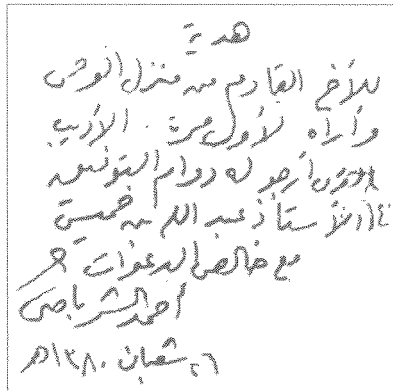 هدية
للأخ القادم من منزل الوحي
وأراه لأول مرة. الأديب
أرجو له دوام التوفيق
الأستاذ عبد الله بن خميس
مع خالص الدعوات
أحمد الشرباصي
٢٦ شعبان ١٣٨٠هـ